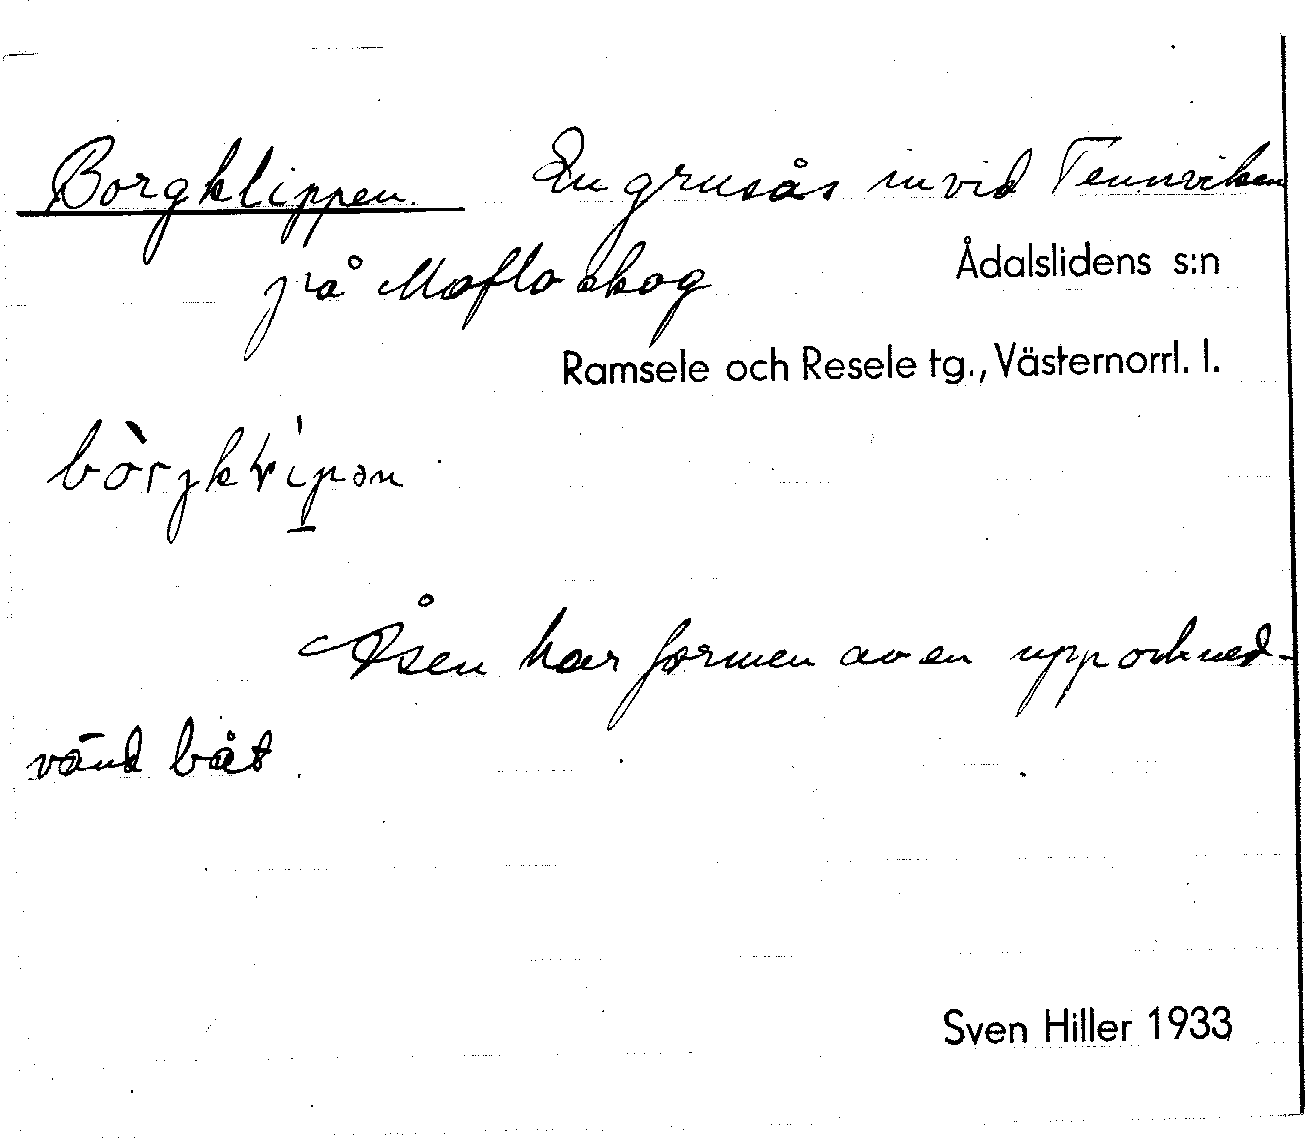 Borgklippen. En grusås invid Tennviken
på Moflo skog
Ådalslidens s:n
Ramsele och Resele tg., Västernorrl. l.
Åsen har formen av en upp och ned-
vänd båt.
Sven Hiller 1933